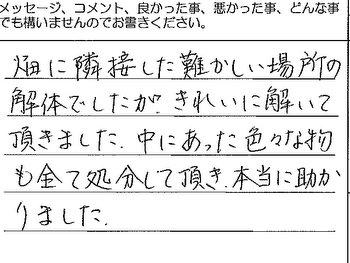 メッセージ、コメント、良かった事、悪かった事、どんな事
でも構いませんのでお書きください。
畑に隣接した難かしい場所の
解体でしたが、きれいに解いて
頂きました。中にあった色々な物
も全て処分して頂き、本当に助か
りました。